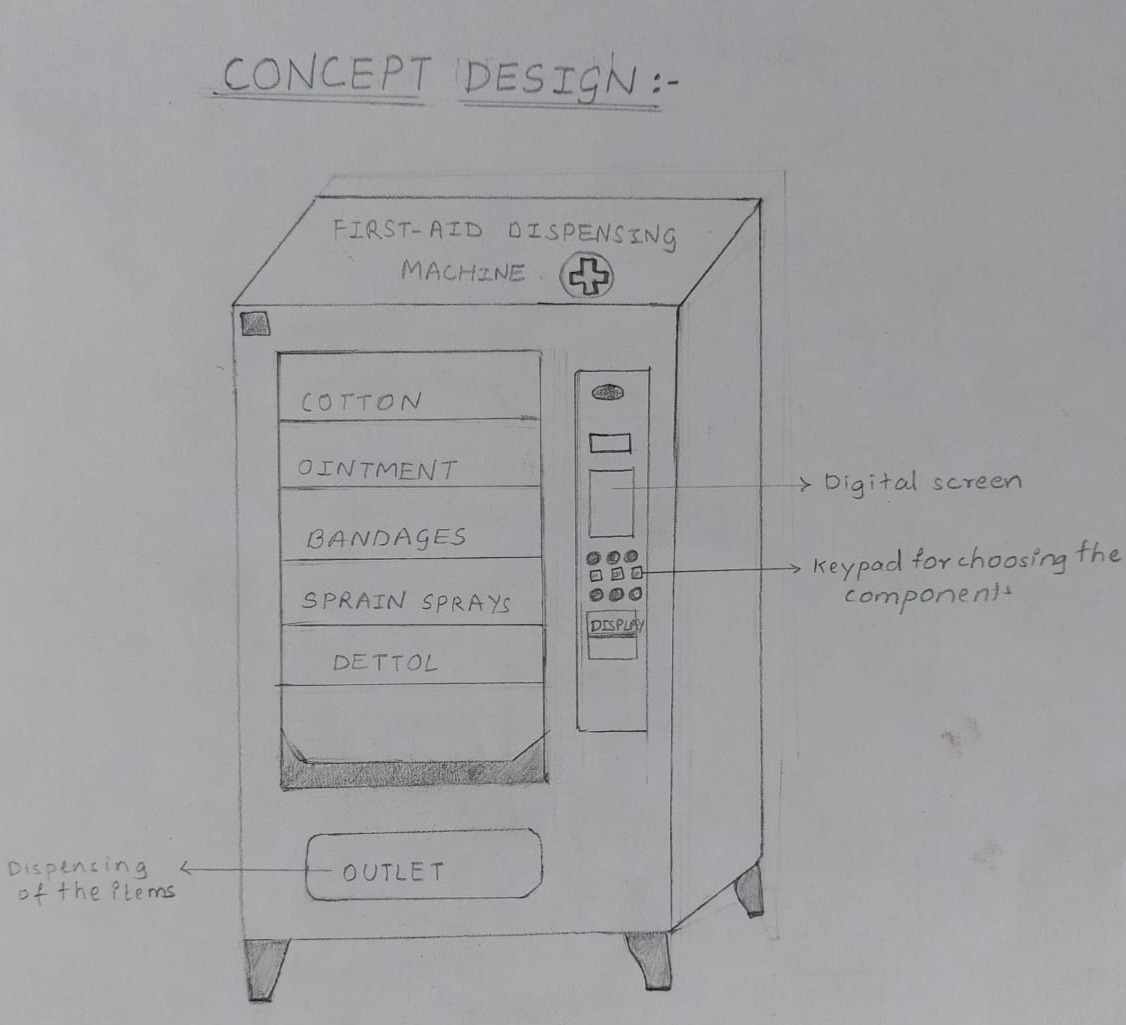 CONCEPT DESIGN :-
FIRST-AID DISPENSING
MACHINE
COTTON
OINTMENT
BANDAGES
SPRAIN SPRAYS
DETTOL
Digital screen
Keypad for choosing the
components
DISPLAY
OUTLET
Dispensing
of the items